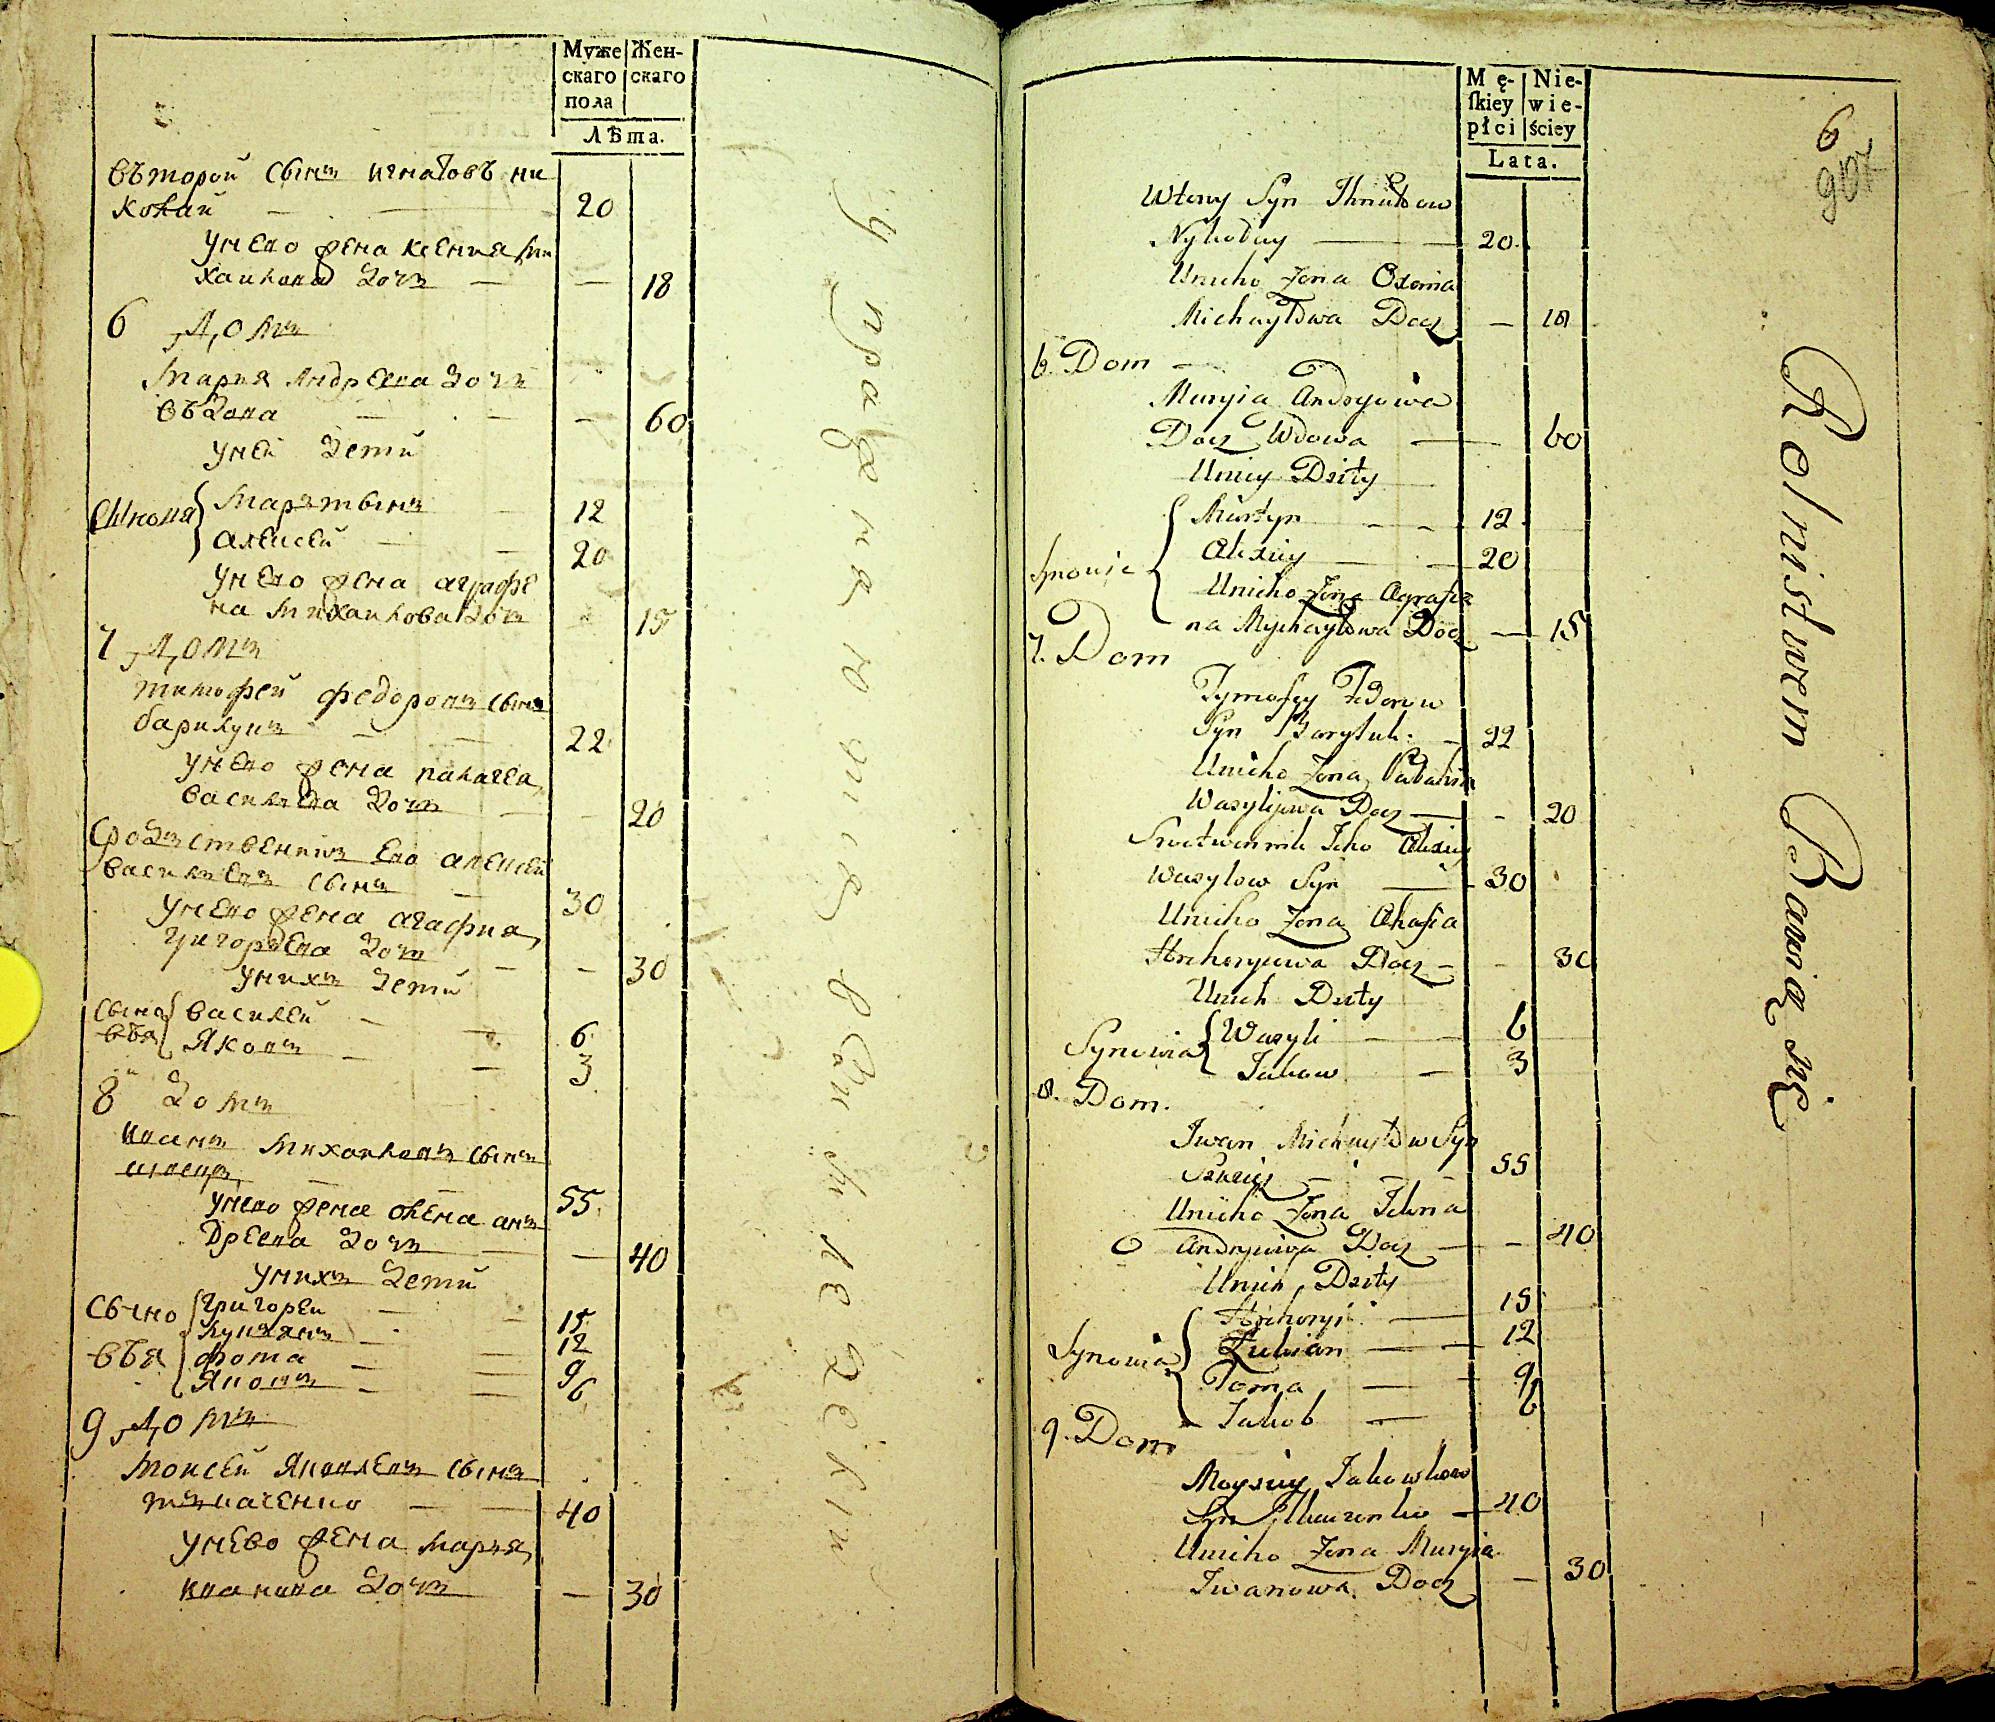 Муже
скаго
пола
Жен-
скаго
Лѣта.
вътором сынъ игнатовъ ни
колай — 20
унево жена ксения ми
хаилова дочъ — — 18
6 Домъ
Мария Андреева дочъ
въдова — — — 60
уней дети
сынова
Мартынъ — 12
алексей — — 20
унево жена аграфе
на Михаилова дочъ 15
7 Домъ
тимофей федоровъ сынъ
барилукъ — — 22
унево жена палагея
васильева дочъ — 20
сродственникъ ево алексей
васильевъ сынъ — 30
унево жена агафия
григорьева дочъ — — 30
унихъ дети
сыно
въя
василей — 6
Яковъ — — 3
8 домъ
иванъ михаиловъ сынъ
— — 55
унево жена олена анъ
дреева дочъ — — 40
унихъ дети
сыно
въя
григорей — 15
лукянъ — 12
фома — — 9
Яковъ — — 6
9 Домъ
Моисей Яковлевъ сынъ
ткаченко — — 40
унево жена марья
иванова дочъ — 30
упражняюцись вси земледеліи
Mę-
skiey
płci
Nie-
wie-
ściey
Lata.
6
907
Wtory Syn Ihnatow
Nykołay — 20
Unieho Zona Oxenia
Michayłowa Docz — 18
6. Dom —
Maryia Andryiowa
Docz Wdowa — 60
Uniey Dzity
Synowie
Martyn — — 12
Alexiey — — 20
Unieho Zona Agrafie
na Mychayłowa Docz — 15
7. Dom
Tymofey Fedorow
Syn Baryłuk. — 22
Unieho Zona Pałahia
Wasylijewa Docz — - 20
Srodtwennik Jeho Alexiey
Wasylow Syn — 30
Unieho Zona Ahafia
Hrehoryiewa Docz — - 30
Unich Dzity
Synowia
Wasyli — — 6
Jakow — 3
8. Dom.
Iwan Michayłow Syn
— — 55
Unieho Zona Jelena
Andryiewa Docz — - 40
Unich Dzity
Synowia
Hrehoryi — 15
Łukian — — 12
Toma — 9
Jakob — 6
9. Dom
Moysiey Jakowlow
Syn Tkaczenko — 40
Unieho Zona Maryia
Iwanowa Docz — 30
Rolnistwem Bawią się